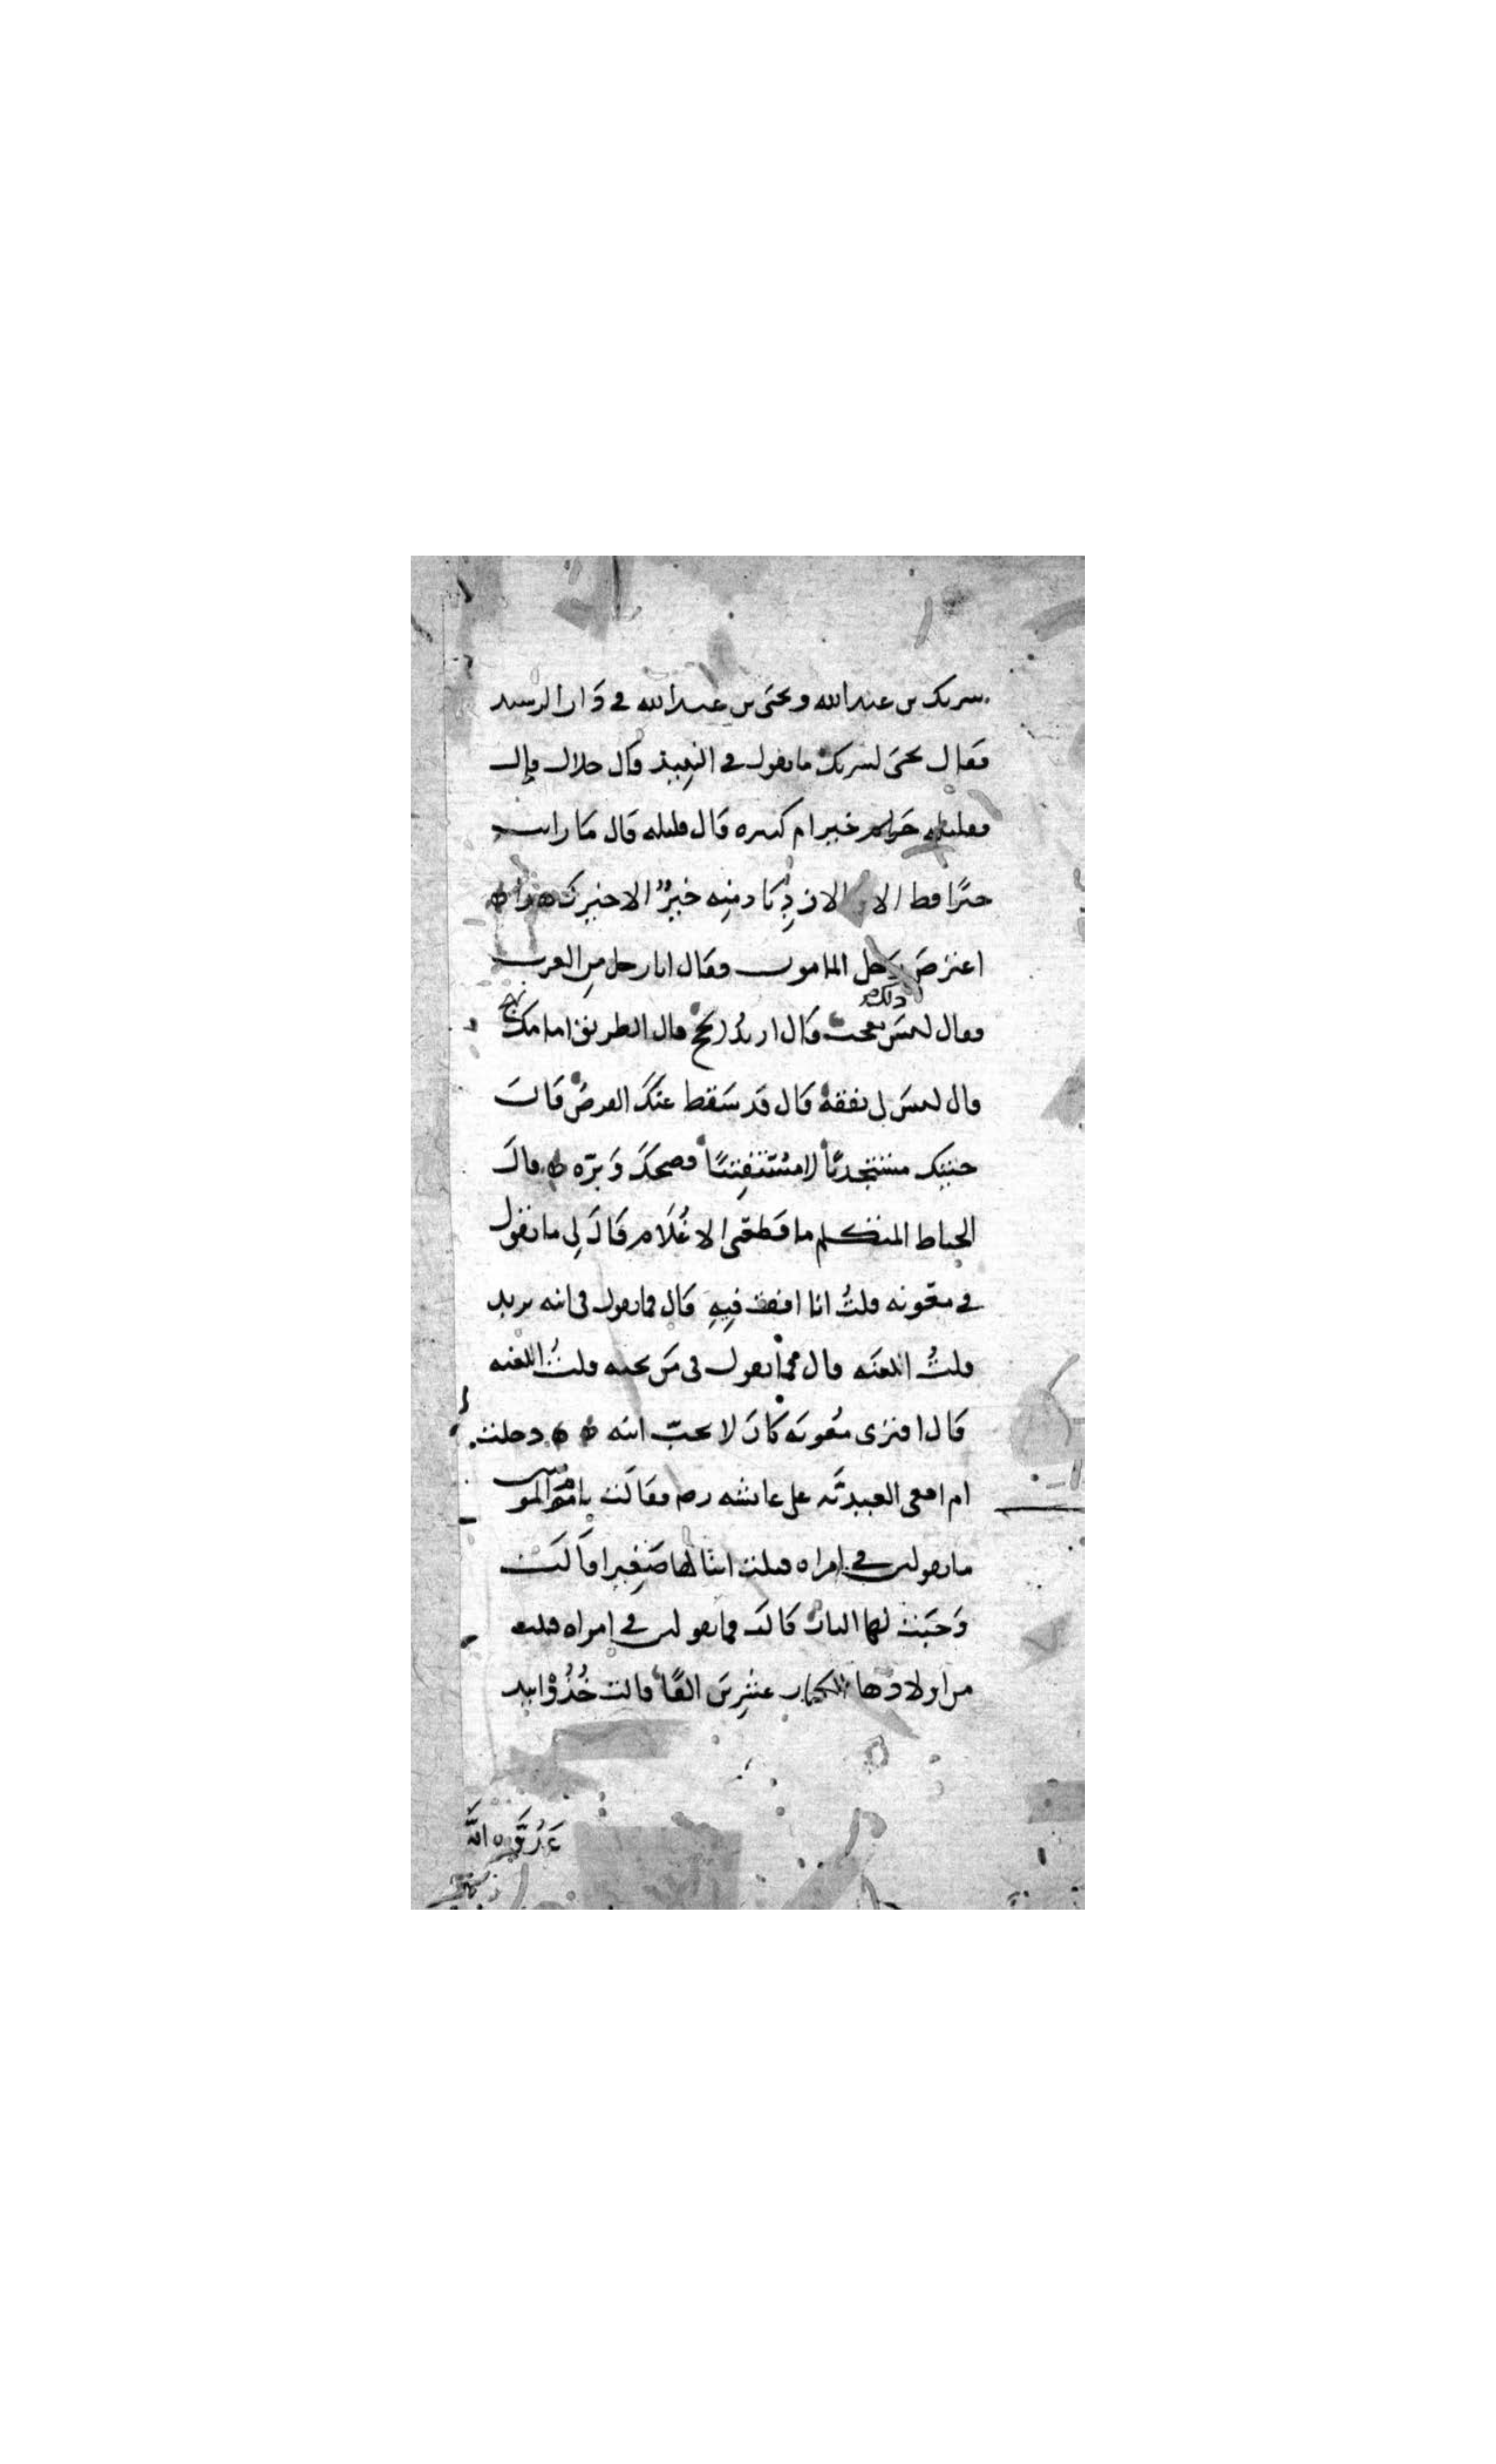 شريك بن عبد الله ويحيى بن عبد الله في دار الرشيد
فقال يحيى لشريك ما تقول في النبيذ قال حلال قال
فقليله خير ام كثيره قال قليله قال ما رايت
خيرا قط الا والازدياد منه خير الا خيرك هذا
اعترض رجل المامون فقال انا رجل من العرب
فقال ليس ذلك بعجب قال اريد الحج قال الطريق امامك نهج
قال ليس لي نفقة قال قد سقط عنك الفرض قال
جئتك مستجديا لا مستفتيا فضحك وبره قال
الخياط المتكلم ما قطعني الا غلام قال لي ما تقول
في معوية قلت انا اقف فيه قال فما تقول في ابنه يزيد
قلت العنه قال فما تقول في من يحبه قلت العنه
قال افترى معوية كان لا يحب ابنه دخلت
ام افعى العبدية على عايشة رضـ فقالت يا ام المومنين
ما تقولين في امراة قتلت ابنا لها صغيرا قالت
وجبت لها النار قالت فما تقولين في امراة قتلت
من اولادها الكبار عشرين الفا قالت خذوا بيد
عدوة الله